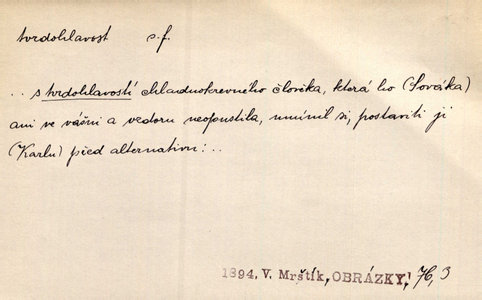 tvrdohlavost s. f.
.. s tvrdohlavostí chladnokrevného člověka, která ho (Sováka)
ani ve vášni a vedoru neopustila, umínil si, postaviti ji
(Karlu) před alternativu: ..
1894, V. Mrštík, OBRÁZKY, 76, 3